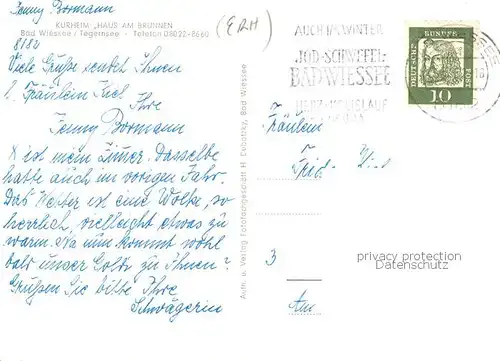 Jenny Bormann
KURHEIM „HAUS AM BRUNNEN
Bad Wiessee / Tegernsee - Telefon 08022-8660
8182
Viele Grüße sendet Ihnen
l. Fräulein
Ihre
Jenny Bormann
X ist mein Zimer. Dasselbe
hatte auch im vorigen Jahr.
Das Wetter ist eine Wolke, so
herrlich, vielleight etwas zu
warm. Na nun kommt wohl
bald unser Goldk zu Ihnen?
Grüßen Sie bitte Ihre
Schwägerin
Auth. u. Verlag Fotofachgeschäft H. Debotzky, Bad Wiessee
(ERH)
AUCH IM WINTER
JOD-SCHWEFEL-
BAD WIESSEE
DEUTSCHE BUNDESPOST
10
Fräulein
3
Am
privacy protection
Datenschutz